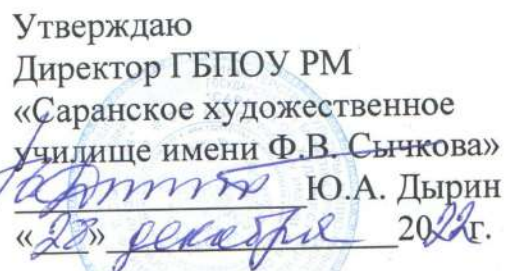 Утверждаю
Директор ГБПОУ РМ
«Саранское художественное
училище имени Ф.В. Сычкова»
Ю.А. Дырин
«28» декабря 2022г.